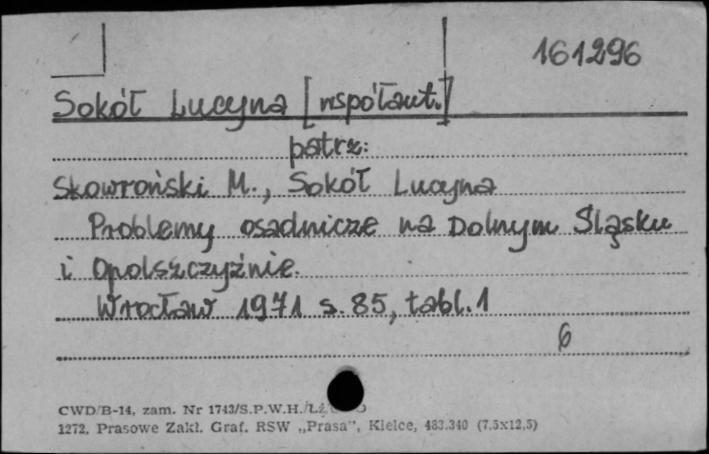 161296
Sokół Lucyna [współaut.]
patrz:
Skowroński M., Sokół Lucyna
Problemy osadnicze na Dolnym Śląsku
i Opolszczyźnie.
Wrocław 1971 s. 85, tabl. 1
6
CWD/B-14, zam. Nr 1743/S.P.W.H.
1272. Prasowe Zakł. Graf. RSW „Prasa”, Kielce, 483.340 (7,5x12,5)